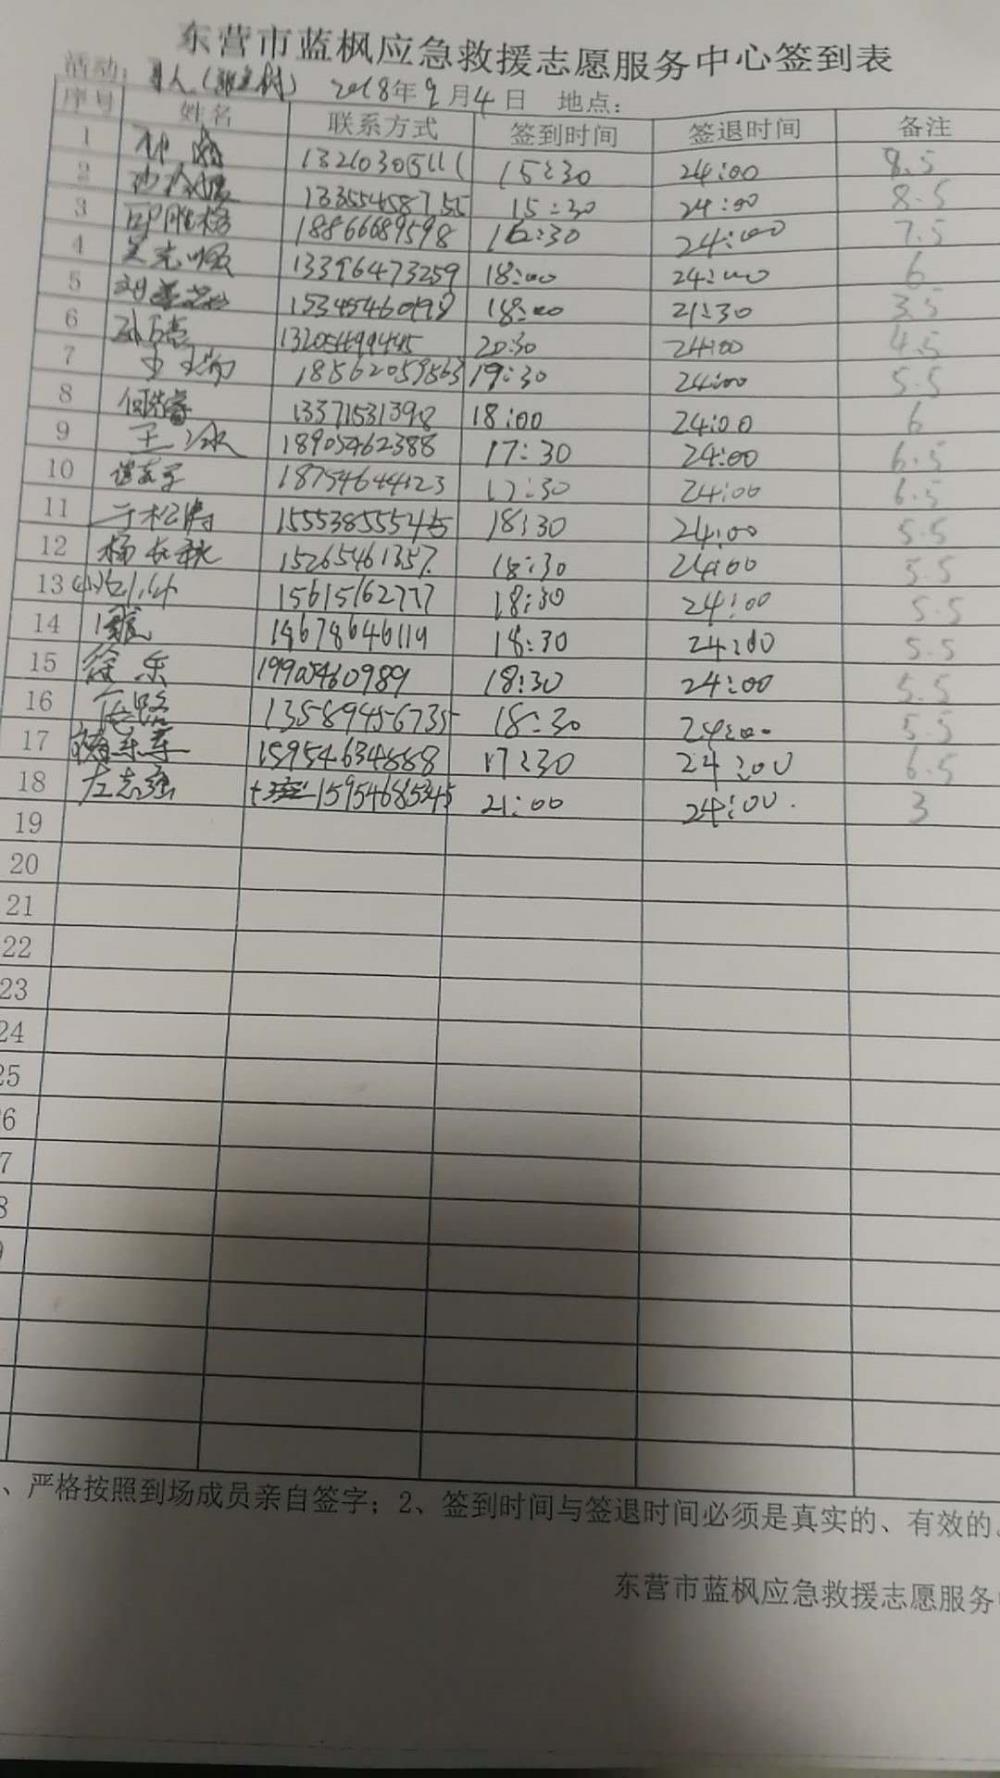 东营市蓝枫应急救援志愿服务中心签到表
活动: 寻人 2018年9月4日 地点:
序号 姓名 联系方式 签到时间 签退时间 备注
1 13210305111 15:30 24:00 8.5
2 13355458755 15:30 24:00 8.5
3 18866689598 16:30 24:00 7.5
4 13396473259 18:00 24:00 6
5 15345460198 18:00 21:30 3.5
6 20:30 24:00 4.5
7 18562059563 19:30 24:00 5.5
8 13371531398 18:00 24:00 6
9 王冰 18905462388 17:30 24:00 6.5
10 18754644123 17:30 24:00 6.5
11 于松涛 15553855545 18:30 24:00 5.5
12 杨长秋 15265461357. 18:30 24:00 5.5
13 15615162777 18:30 24:00 5.5
14 18:30 24:00 5.5
15 徐乐 19905460989 18:30 24:00 5.5
16 13589456735 18:30 24:00 5.5
17 15954634888 17:30 24:00 6.5
18 左志强 15954685345 21:00 24:00. 3
19
20
21
22
23
24
25
6
7
8
9
、严格按照到场成员亲自签字；2、签到时间与签退时间必须是真实的、有效的。
东营市蓝枫应急救援志愿服务中